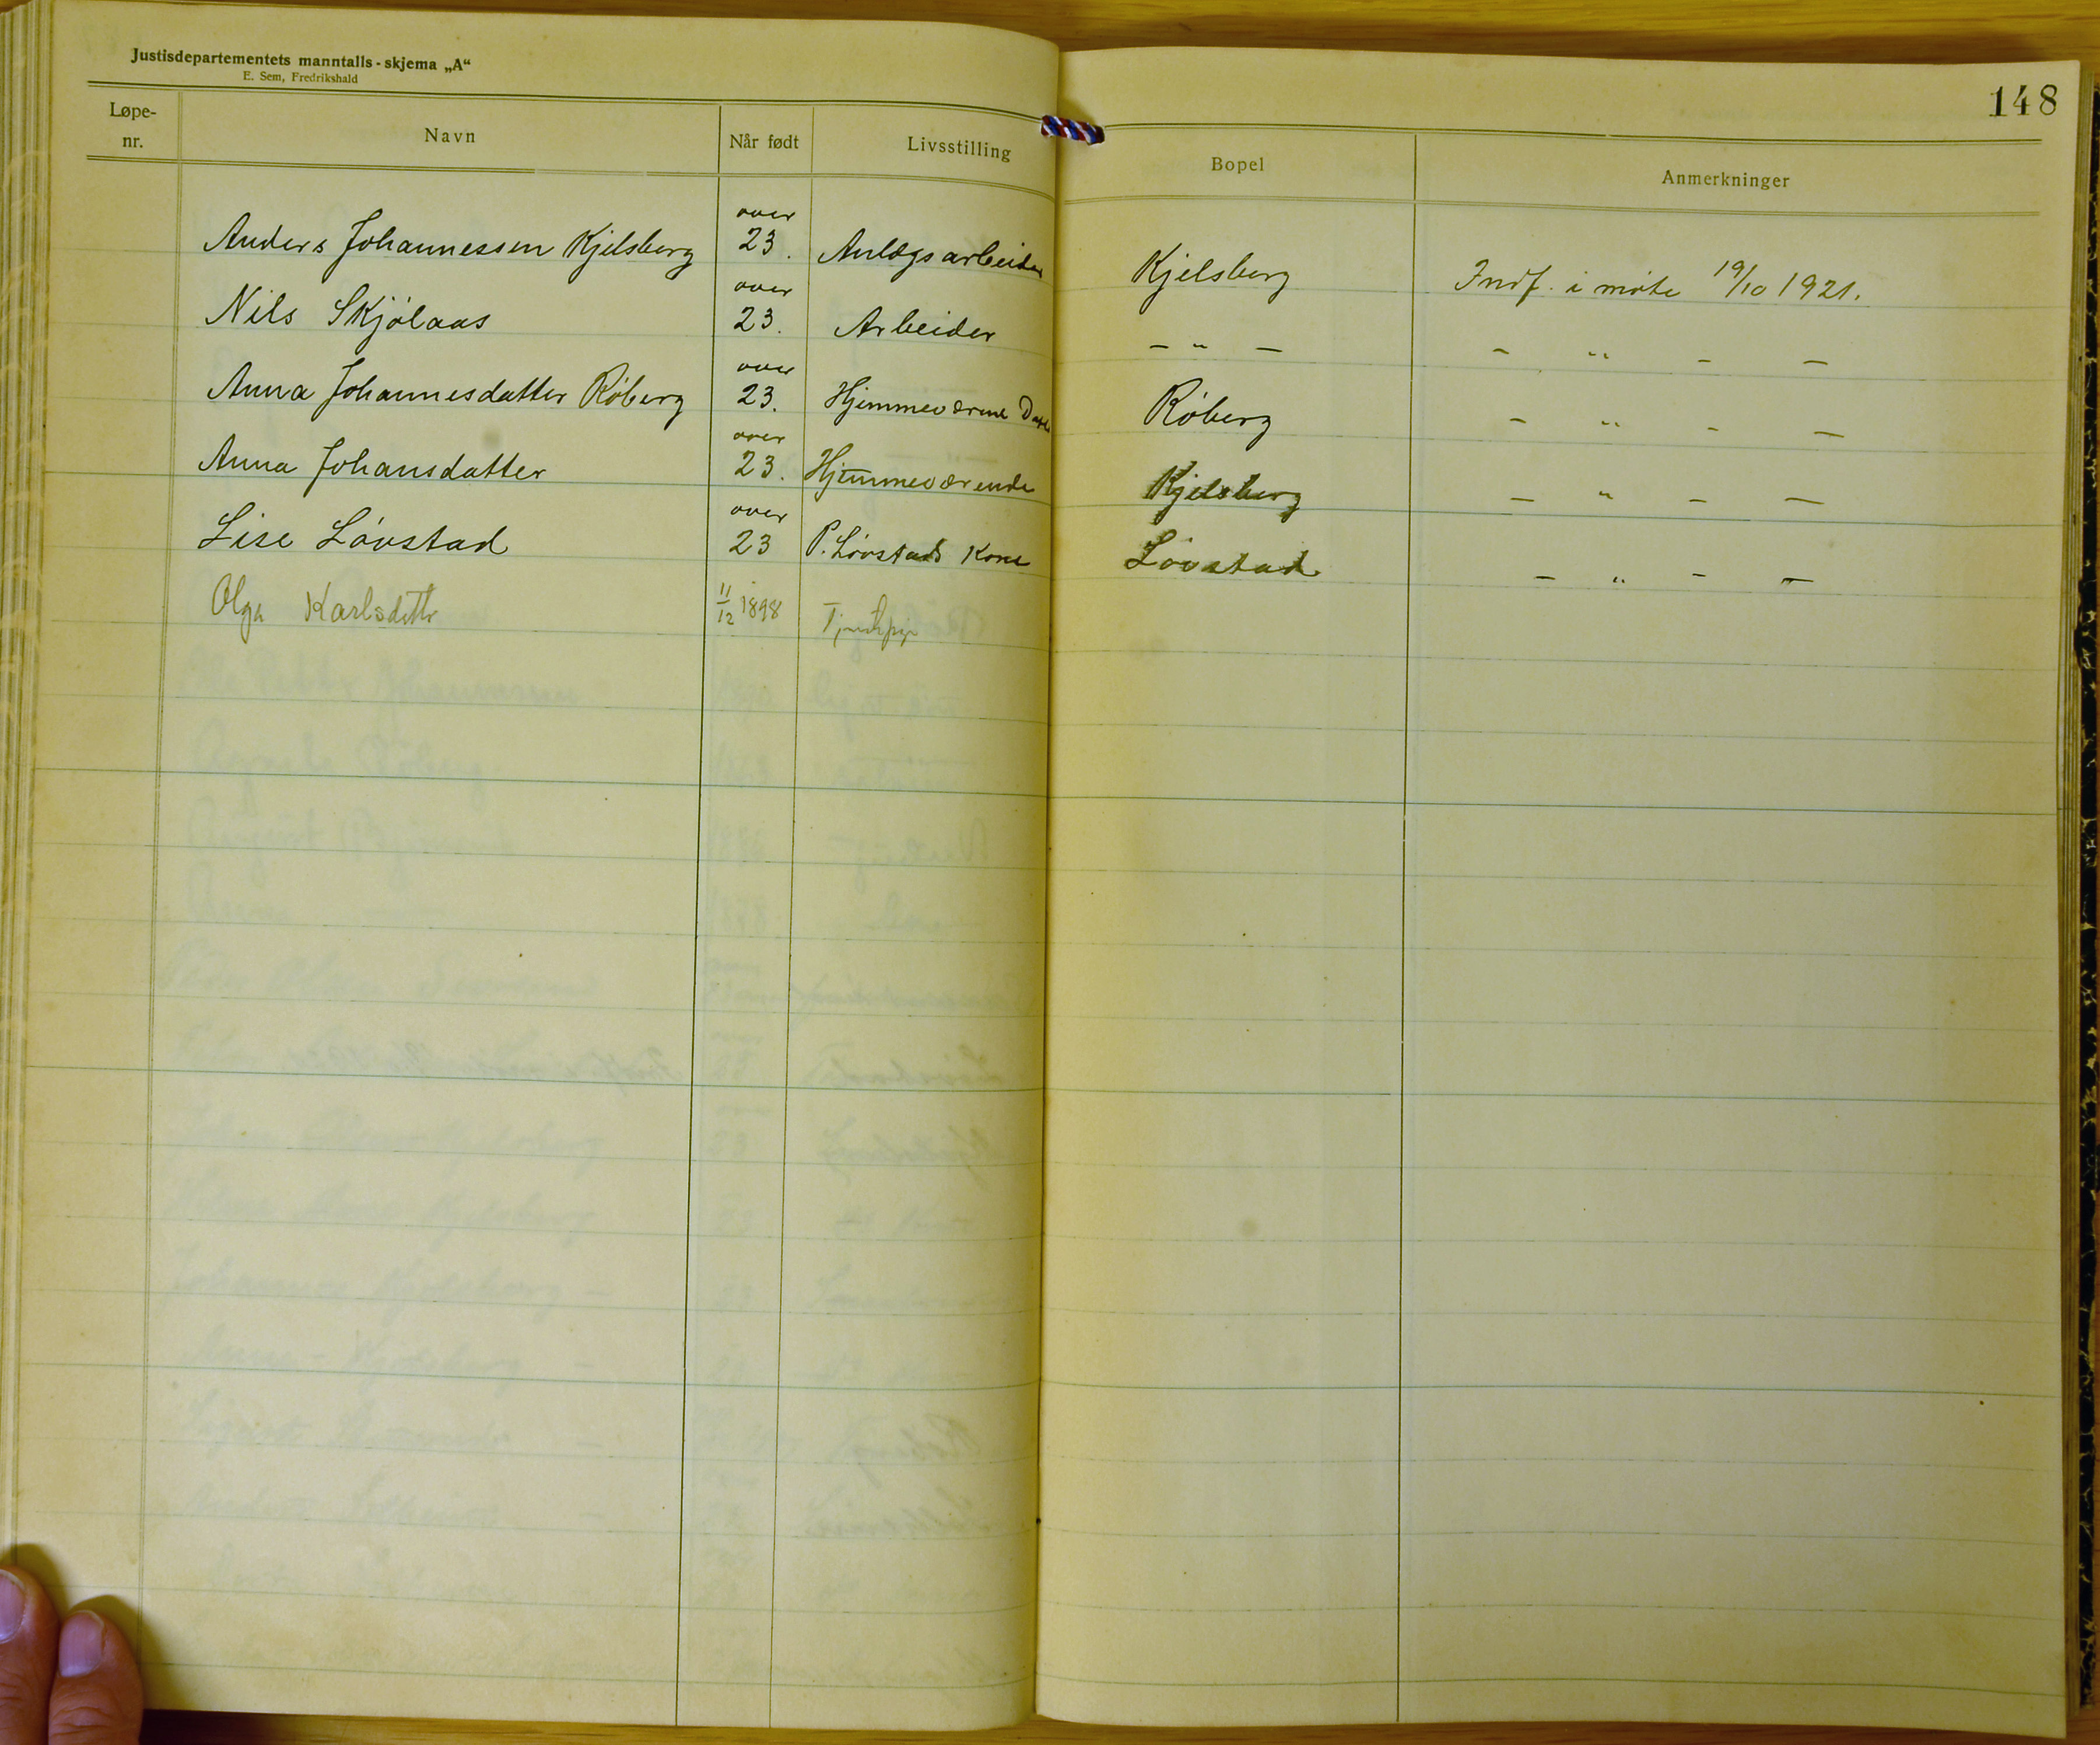 Justisdepartementets manntalls-skjema „A“
E. Sem, Fredrikshald
148
Løpe-nr. Navn Når født Livsstilling Bopel Anmerkninger
Anders Johannessen Kjelsberg over 23. Anlægsarbeider Kjelsberg Indf. i møte 19/10 1921.
Nils Skjölaas over 23. Arbeider — " — — " — —
Anna Johannesdatter Röberg over 23. Hjemmeværende Röberg — " — —
Anna Johansdatter over 23. Hjemmeværende Kjelsberg — " — —
Lise Lövstad over 23 P. Lövstads Kone Lövstad — " — —
Olga Karlsdttr 11/12 1898